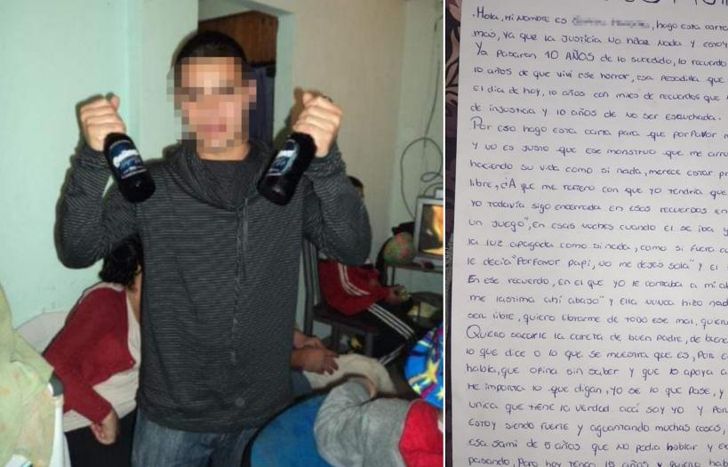 . Hola, Mi nombre es , hago esta carta
mas, ya que la Justicia no hace nada y estoy
Ya pasaron 10 AÑOS de lo sucedido, lo recuerdo
10 años de que vivi ese horror, esa pesadilla que
el dia de hoy, 10 años con miles de recuerdos que
de injusticia y 10 años de no ser escuchada.
Por eso hago esta carta para que por favor
y no es justo que ese monstruo que me
haciendo su vida como si nada, merece estar
libre, A que me refiero con que yo tendria que
yo todavia sigo encerrada en esos recuerdos en
un Juego", en esas noches cuando el se iba y
la luz apagada como si nada, como si fuera
le decia "Por favor papi, no me dejes sola" y el
En ese recuerdo, en el que yo le contaba a mi
me lastima ahi abajo" y ella nunca hizo
ser libre, quiero librarme de todo ese mal,
Quiero sacarle la careta de buen padre, de
lo que dice o lo que se muestra que es, Por
habla, que opina sin saber y que lo apoya a
Me importa lo que digan, yo se lo que pase, y
unica que tiene la verdad. acá soy yo y
estoy siendo fuerte y aguantando muchas cosas,
esa sami de 5 años que no podia hablar y
pasando, Pero hoy tengo 15 años y quiero